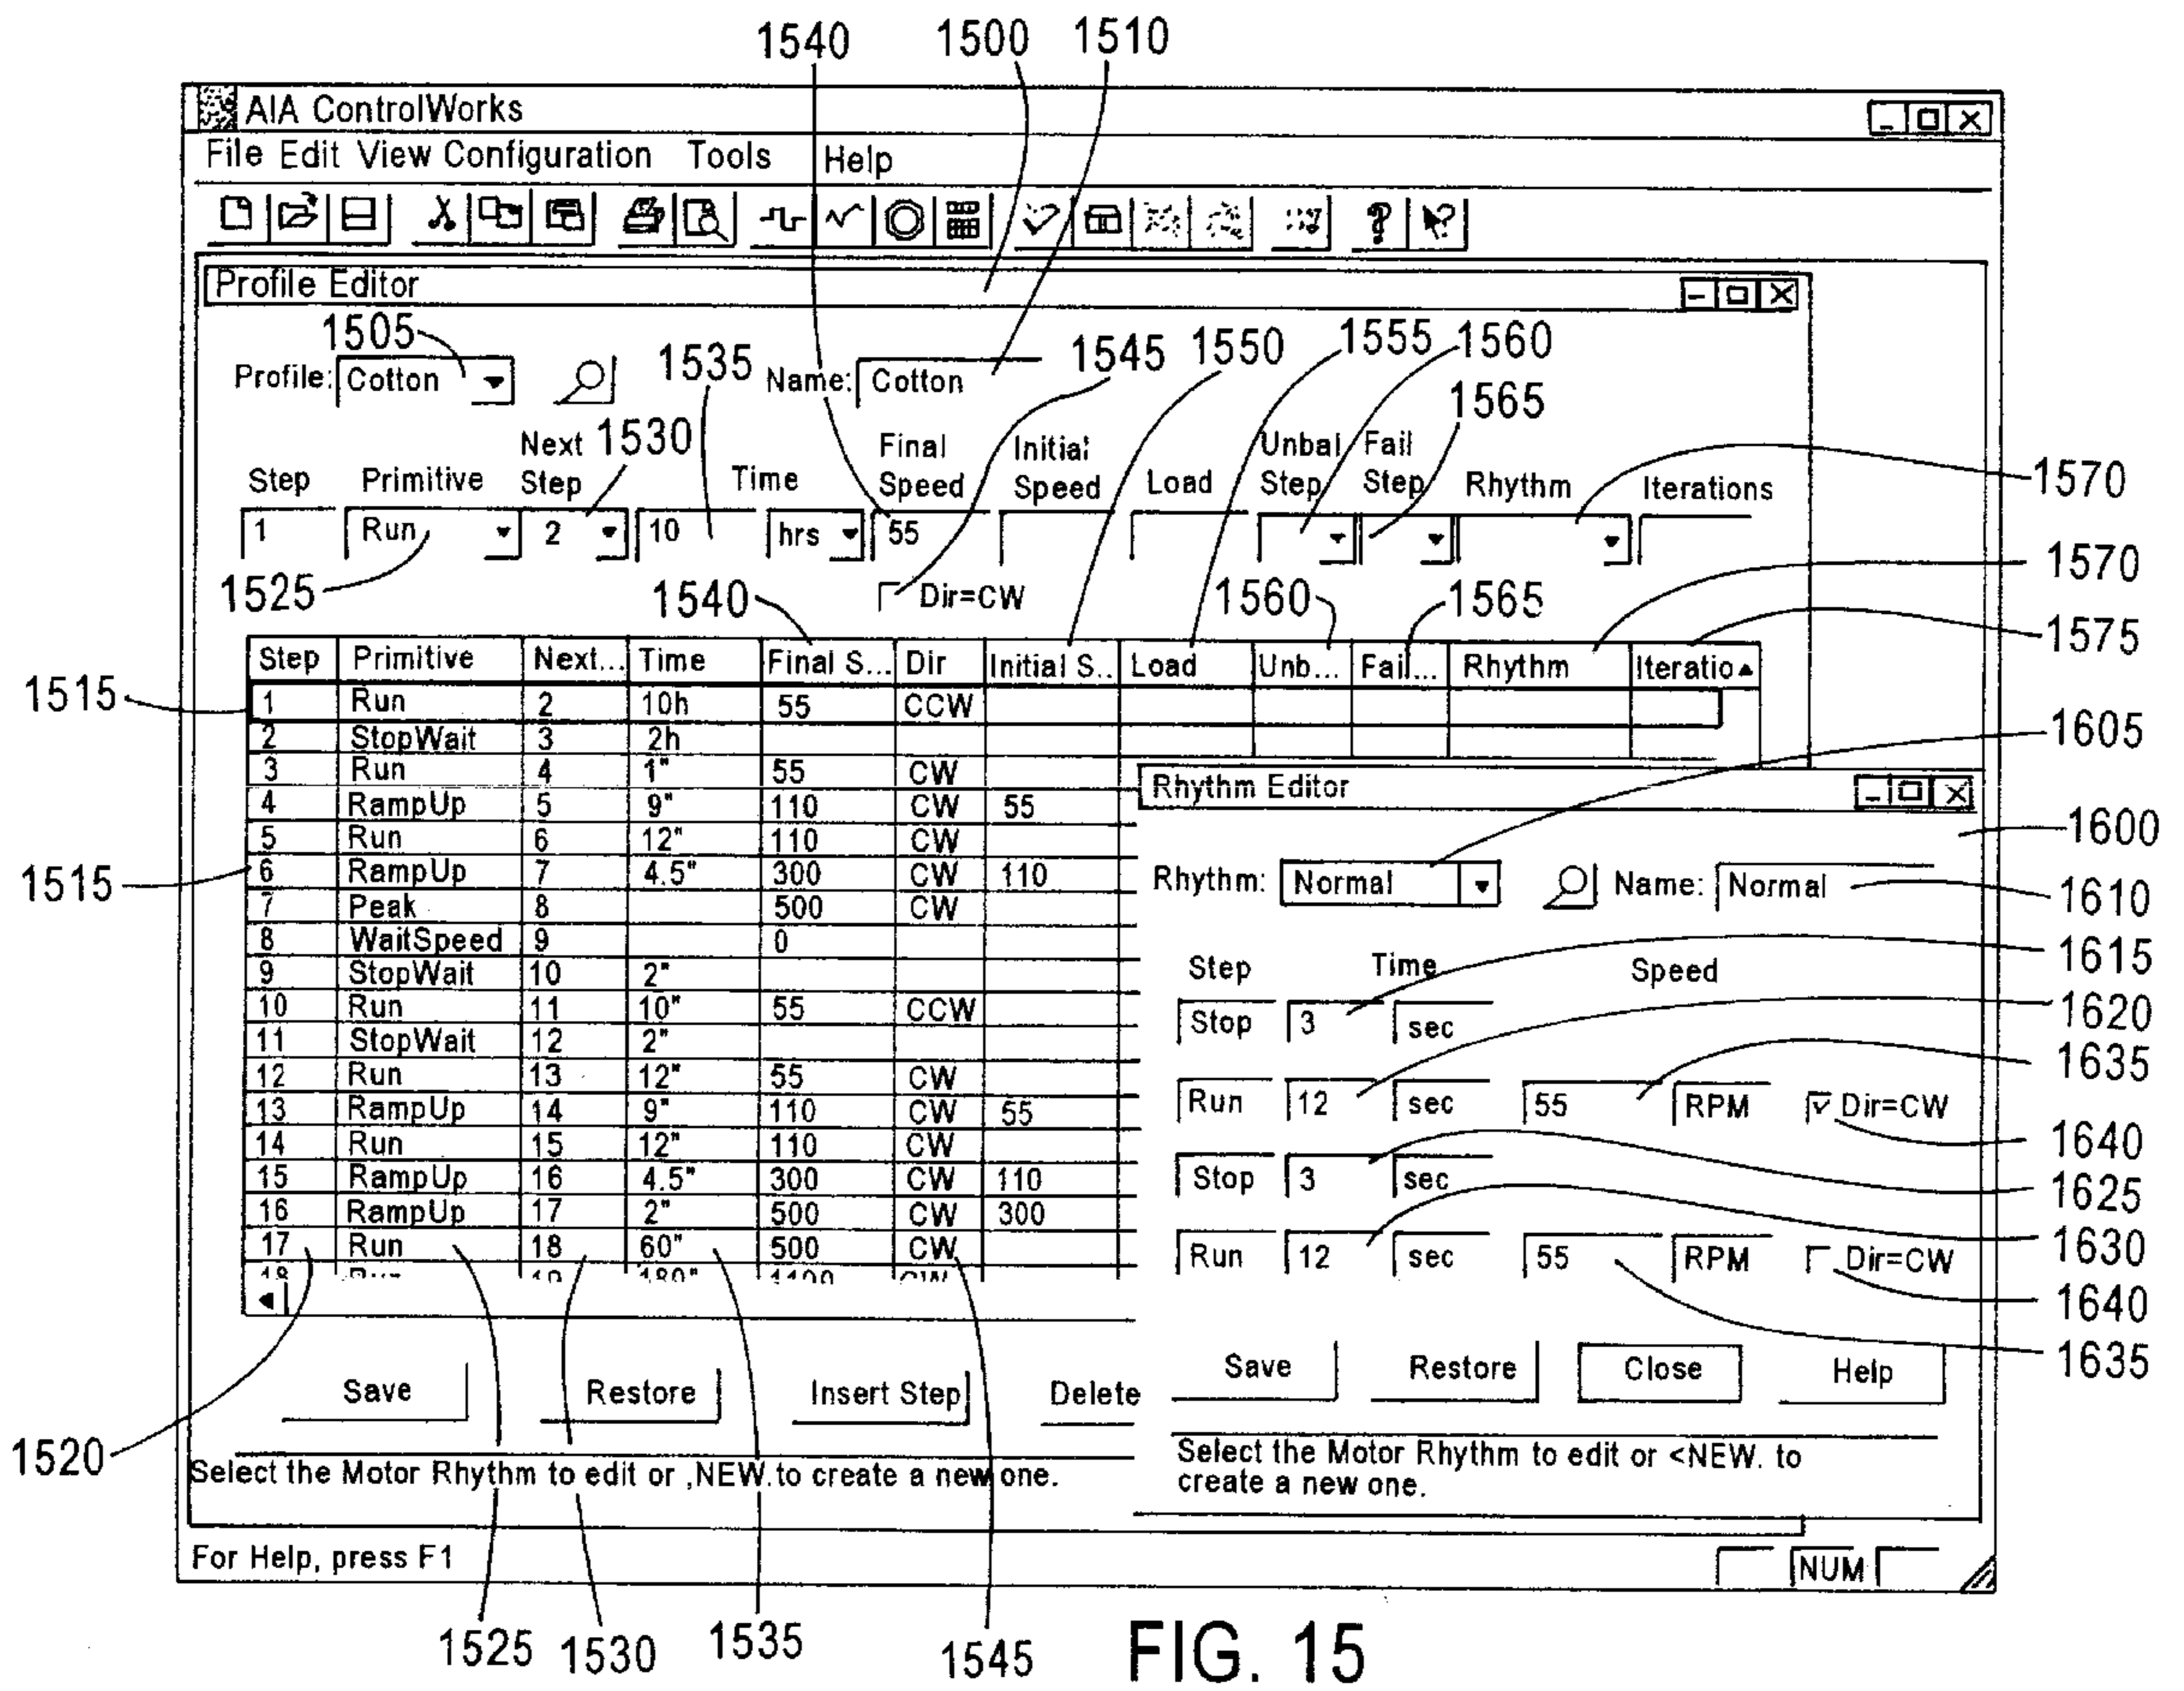 1540 1500 1510
AIA ControlWorks
File Edit View Configuration Tools Help
Profile Editor
1505 1535 1545 1550 1555 1560
Profile: Cotton Name: Cotton
1565
Next 1530 Final Initial Unbal Fail
Step Primitive Step Time Speed Speed Load Step Step Rhythm Iterations 1570
1 Run 2 10 hrs 55
1570
1525 1540 Dir=CW 1560 1565
1575
Step Primitive Next... Time Final S... Dir Initial S.. Load Unb... Fail... Rhythm Iteratio
1515 1 Run 2 10h 55 CCW
2 StopWait 3 2h
1605
3 Run 4 1" 55 CW
4 RampUp 5 9" 110 CW 55
5 Run 6 12" 110 CW
1515 6 RampUp 7 4.5" 300 CW 110
7 Peak 8 500 CW
8 WaitSpeed 9 0
9 StopWait 10 2"
10 Run 11 10" 55 CCW
11 StopWait 12 2"
12 Run 13 12" 55 CW
13 RampUp 14 9" 110 CW 55
14 Run 15 12" 110 CW
15 RampUp 16 4.5" 300 CW 110
16 RampUp 17 2" 500 CW 300
17 Run 18 60" 500 CW
18 Run 19 180" 1100 CW
Save Restore Insert Step Delete
1520
Select the Motor Rhythm to edit or ,NEW.to create a new one.
Rhythm Editor
1600
Rhythm: Normal Name: Normal
1610
1615
Step Time Speed
1620
Stop 3 sec
1635
Run 12 sec 55 RPM Dir=CW
1640
Stop 3 sec
1625
1630
Run 12 sec 55 RPM Dir=CW
1640
1635
Save Restore Close Help
Select the Motor Rhythm to edit or <NEW. to
create a new one.
For Help, press F1
NUM
1525 1530 1535 1545
FIG. 15